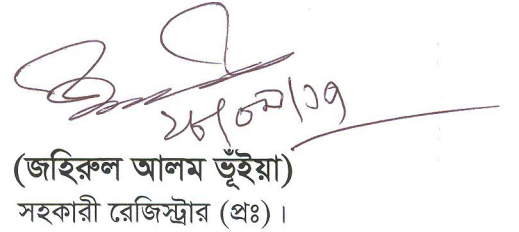 ২৮/০৯/১৭
(জহিরুল আলম ভূঁইয়া)
সহকারী রেজিস্ট্রার (প্রঃ)।